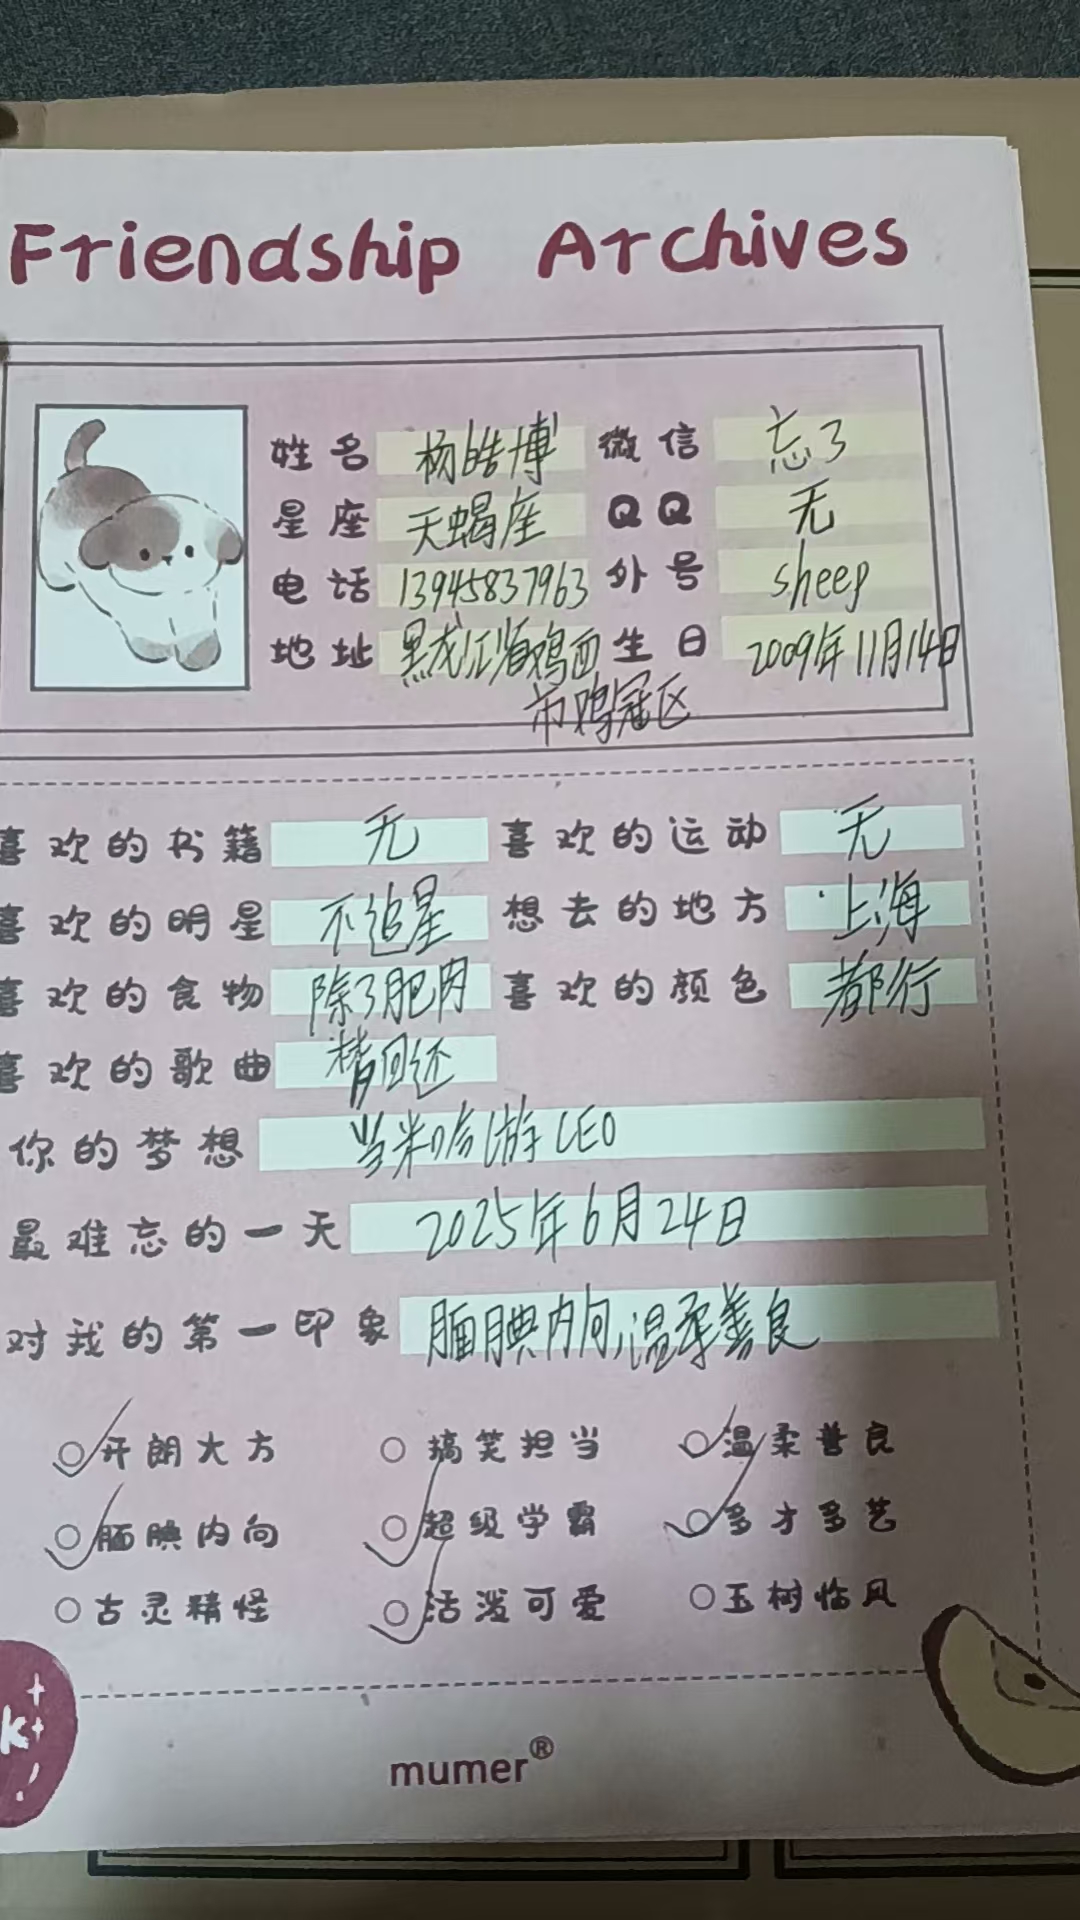 Friendship Archives
姓名 杨皓博 微信 忘了
星座 天蝎座 QQ 无
电话 13945837963 外号 sheep
地址 黑龙江省鸡西 生日 2009年11月14日
市鸡冠区
喜欢的书籍 无 喜欢的运动 无
喜欢的明星 不追星 想去的地方 上海
喜欢的食物 除了肥肉 喜欢的颜色 都行
喜欢的歌曲 回还
你的梦想 当米哈游CEO
最难忘的一天 2025年6月24日
对我的第一印象 腼腆内向,温柔善良
开朗大方 搞笑担当 温柔善良
腼腆内向 超级学霸 多才多艺
古灵精怪 活泼可爱 玉树临风
k
mumer®